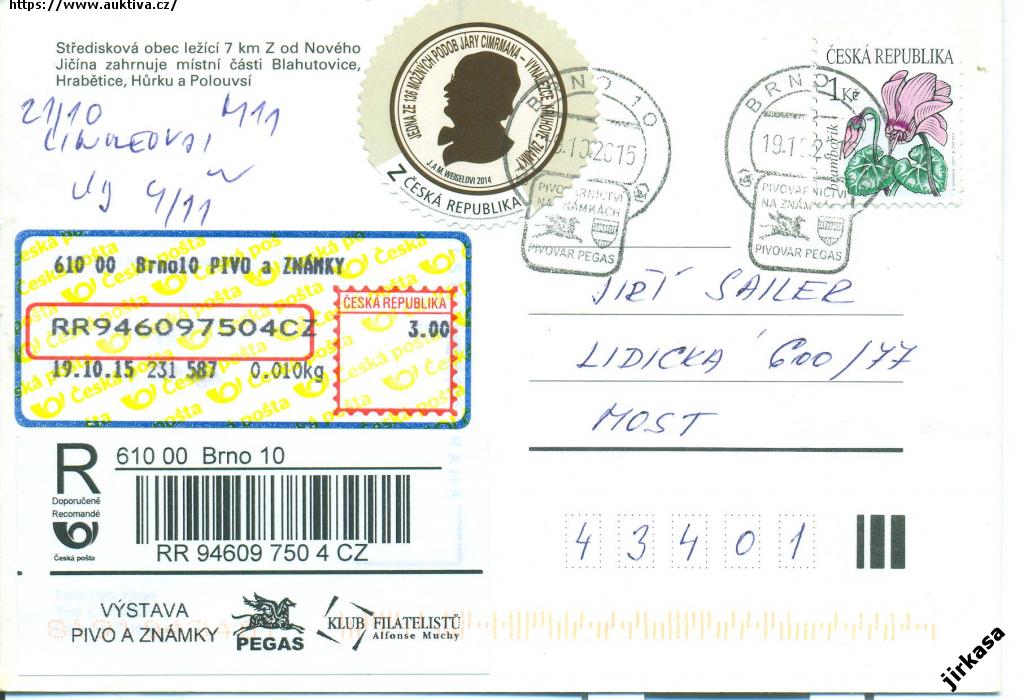 https://www.auktiva.cz/
Středisková obec ležící 7 km Z od Nového
Jičína zahrnuje místní části Blahutovice,
Hrabětice, Hůrku a Polouvsí
21/10 M11
4/11
JEDNA ZE 136 MOŽNÝCH PODOB JÁRY CIMRMANA – VYNÁLEZCE KRUHOVÉ ZNÁMKY
J.A.M. WEIGELOVI 2014
Z ČESKÁ REPUBLIKA
BRNO 10
.10.2015
PIVOVARNICTVÍ
NA ZNÁMKÁCH
PIVOVAR PEGAS
BRNO
19.10.2
PIVOVARNICTVÍ
NA ZNÁM
PIVOVAR PEGAS
ČESKÁ REPUBLIKA
1 Kč
brambořík
Česká pošta
610 00 Brno10 PIVO a ZNÁMKY
ČESKÁ REPUBLIKA
RR946097504CZ
3.00
19.10.15 231 587 0.010kg
JIŘÍ SAILER
LIDICKÁ 600/77
MOST
43401
R
610 00 Brno 10
Doporučeně
Recomandé
Česká pošta
RR 94609 750 4 CZ
VÝSTAVA
PIVO A ZNÁMKY
PEGAS
KLUB FILATELISTŮ
Alfonse Muchy
jirkasa